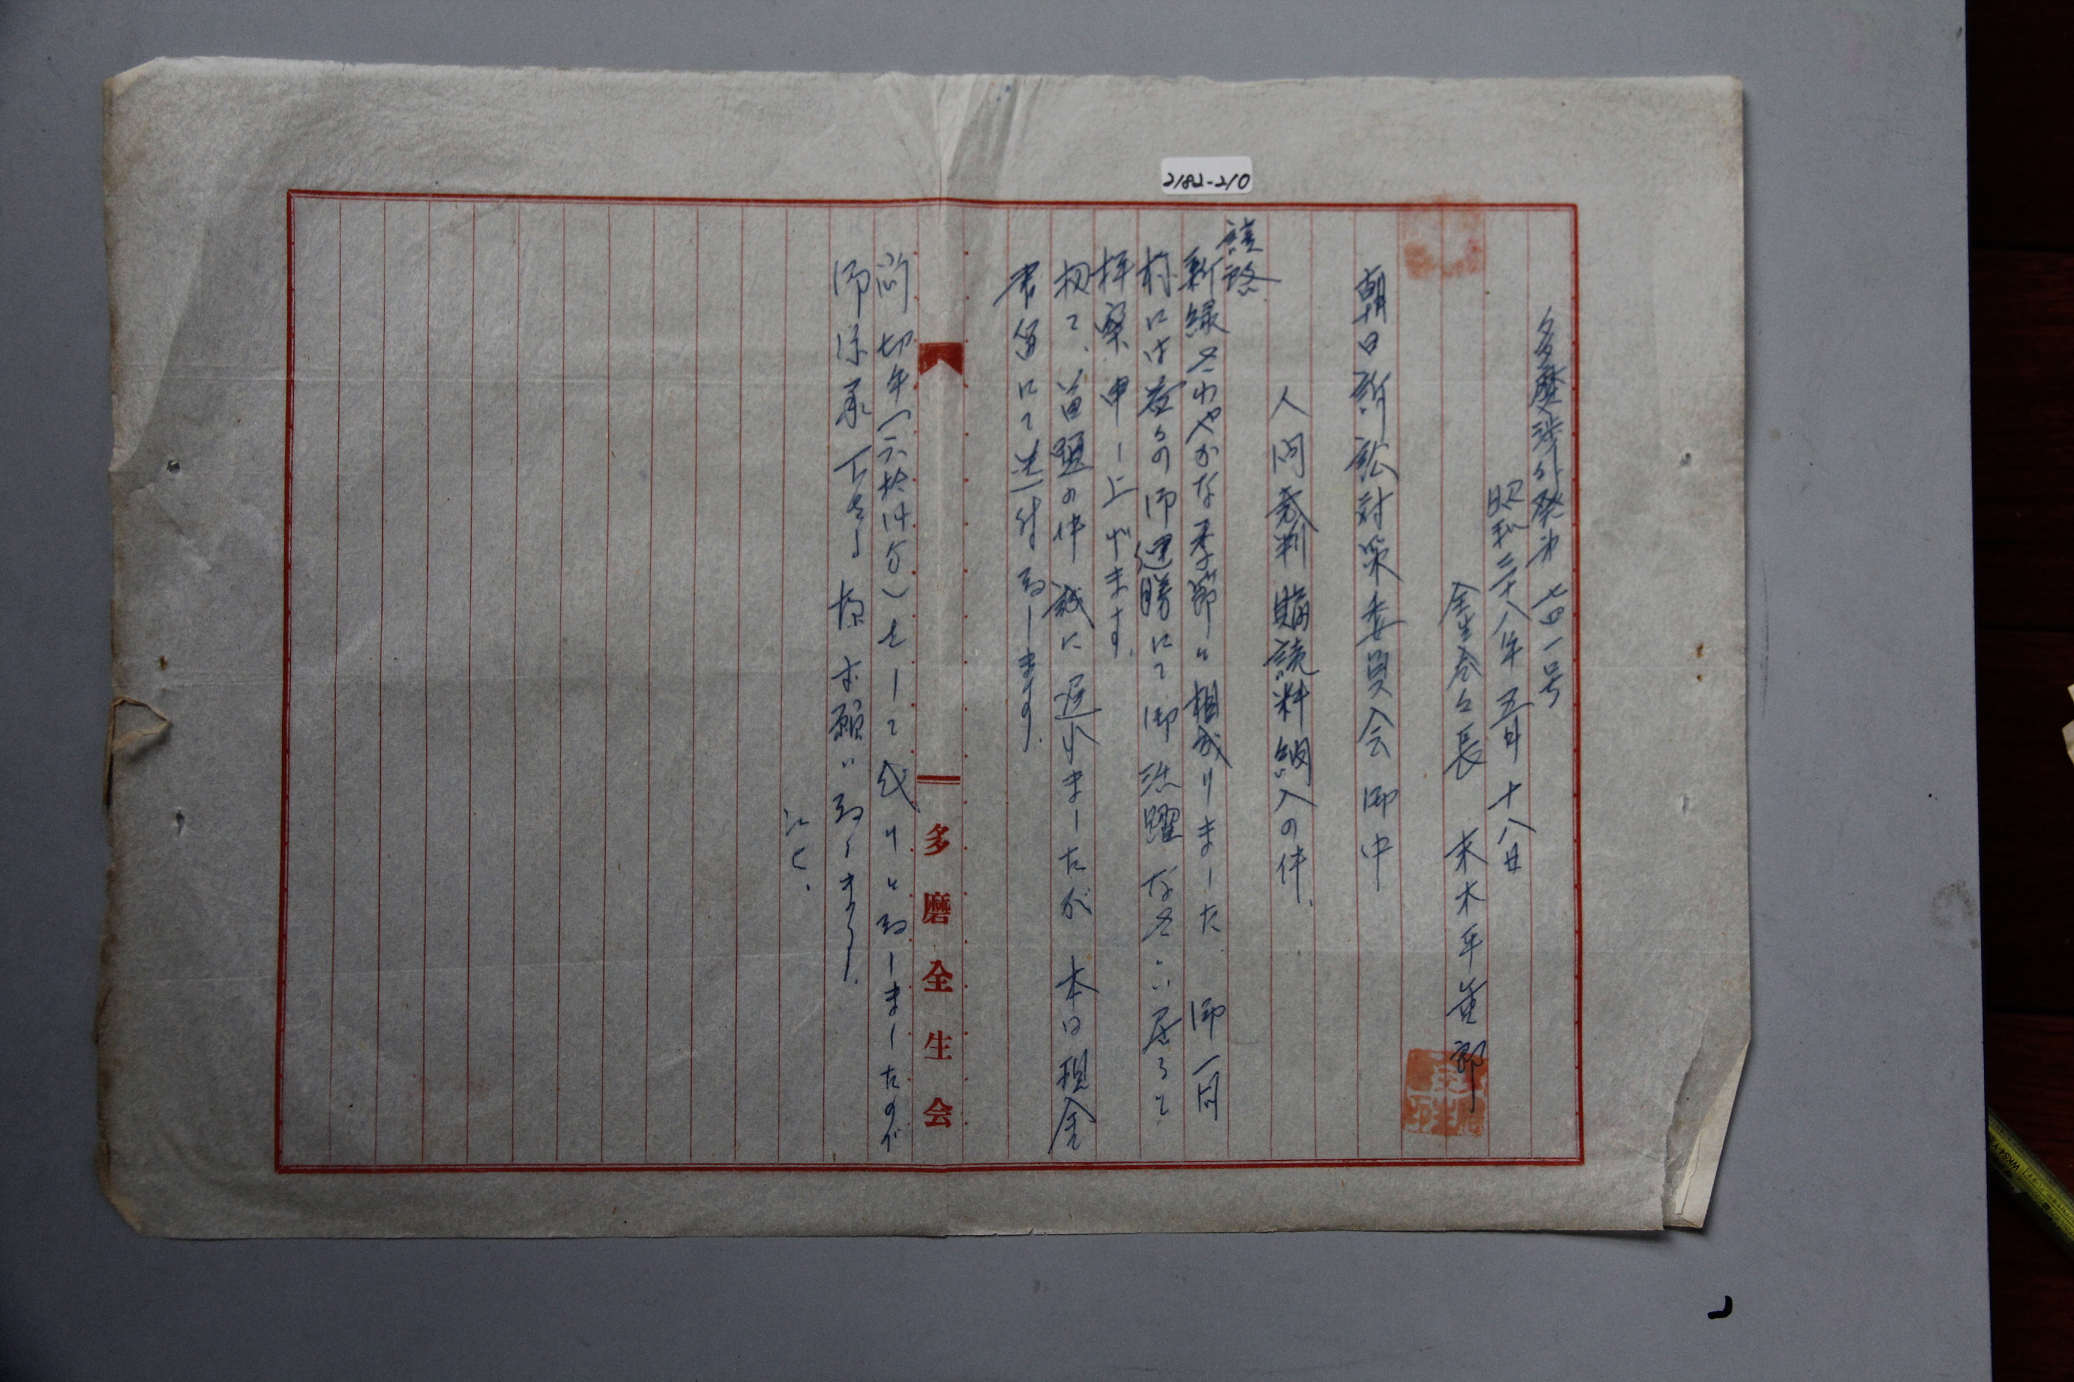 2182-210
多磨渉外発第七四一号
昭和二十八年五月十八日
全生会々長 末木平重郎
朝日訴訟対策委員会御中
人間裁判購読料納入の件
謹啓
新緑さわやかな季節と相成りました、御一同
様には益々の御健勝にて御活躍なさい居ると
拝察申し上げます。
扨て、首題の件誠に遅れましたが本日現金
書留にて送付致します。
尚切手(六拾円分)をして代りと致しましたので
御承下さる様お願い致します。
多磨全生会